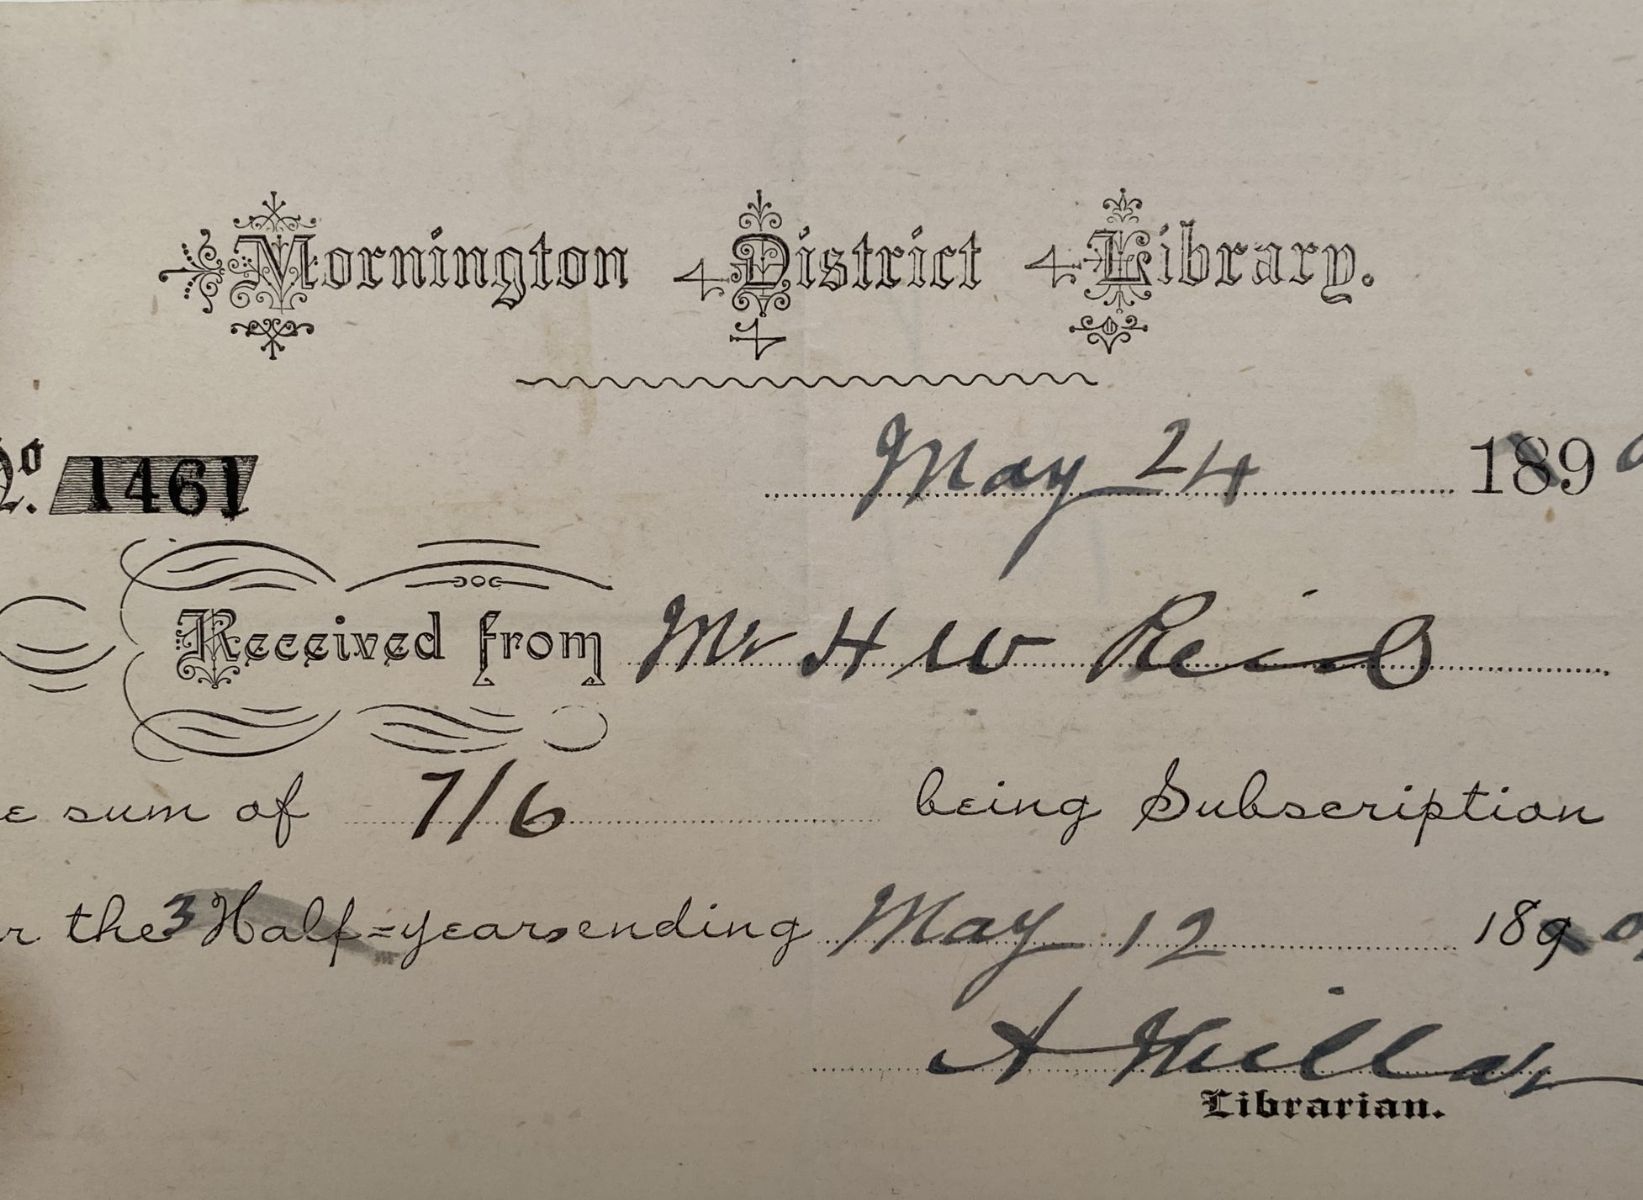 Mornington District Library.
No. 1461 May 24 189
Received from Mr H W Reid
e sum of 7/6 being Subscription
r the 3 Half=years ending May 12 189
A Millar
Librarian.